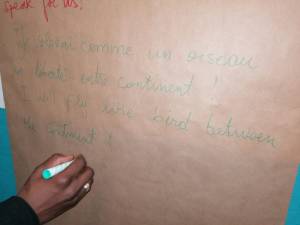 speak for us!
comme un oiseau
entre continent !
I will fly like bird between
the continent !